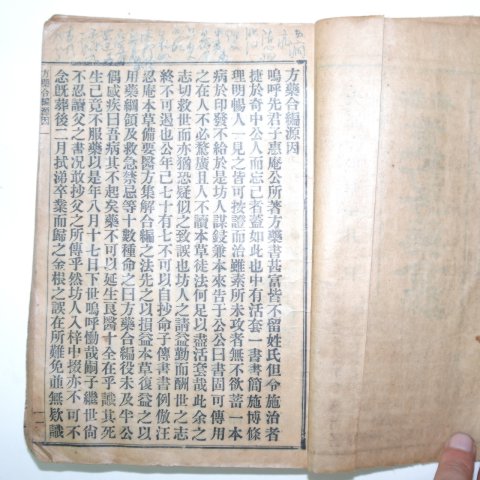 方藥合編源因
嗚呼先君子惠庵公所著方藥書甚富皆不留姓氏但令施治者
捷於奇中公人而忘己者蓋如此也中有活套一書書簡施博條
理明暢人一見之皆可按證而治雖素所未攻者無不欲蓄一本
病於印發不給於是坊人謀鋟兼本來告于公公曰書固可傳用
之在人不必騖廣且人不讀本草徒法何足以盡活套哉此余之
志切救世而亦猶恐疑似之致誤也坊人之請益勤而酬世之志
終不可遏也公年已七十有七不可以自抄命子傳書書例倣汪
忍庵本草備要醫方集解合編之法先之以損益本草復益之以
用藥綱領及救急禁忌等十數種命之曰方藥合編役未及半公
偶感疾曰吾病其不起矣藥不可以延生良醫十全在乎識其死
生己竟不服藥以是年八月十七日下世嗚呼慟哉嗣子繼世尙
不忍讀父之書况敢抄父之所傳乎然坊人入梓中掇亦不可不
念旣葬後二月拭涕卒業而歸之金根之誤在所難免並無欵識
方藥合編源因
一